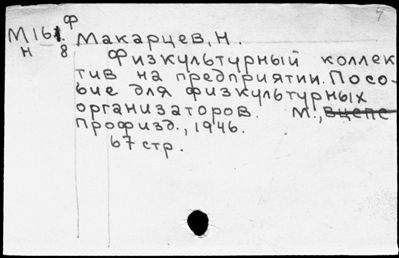 Ф
М161. Макарцев, Н.
Н 8 Физкультурный коллек
тив на предприятии. Посо-
бие для физкультурных
организаторов. М., вцспс
Профизд., 1946.
67 стр.